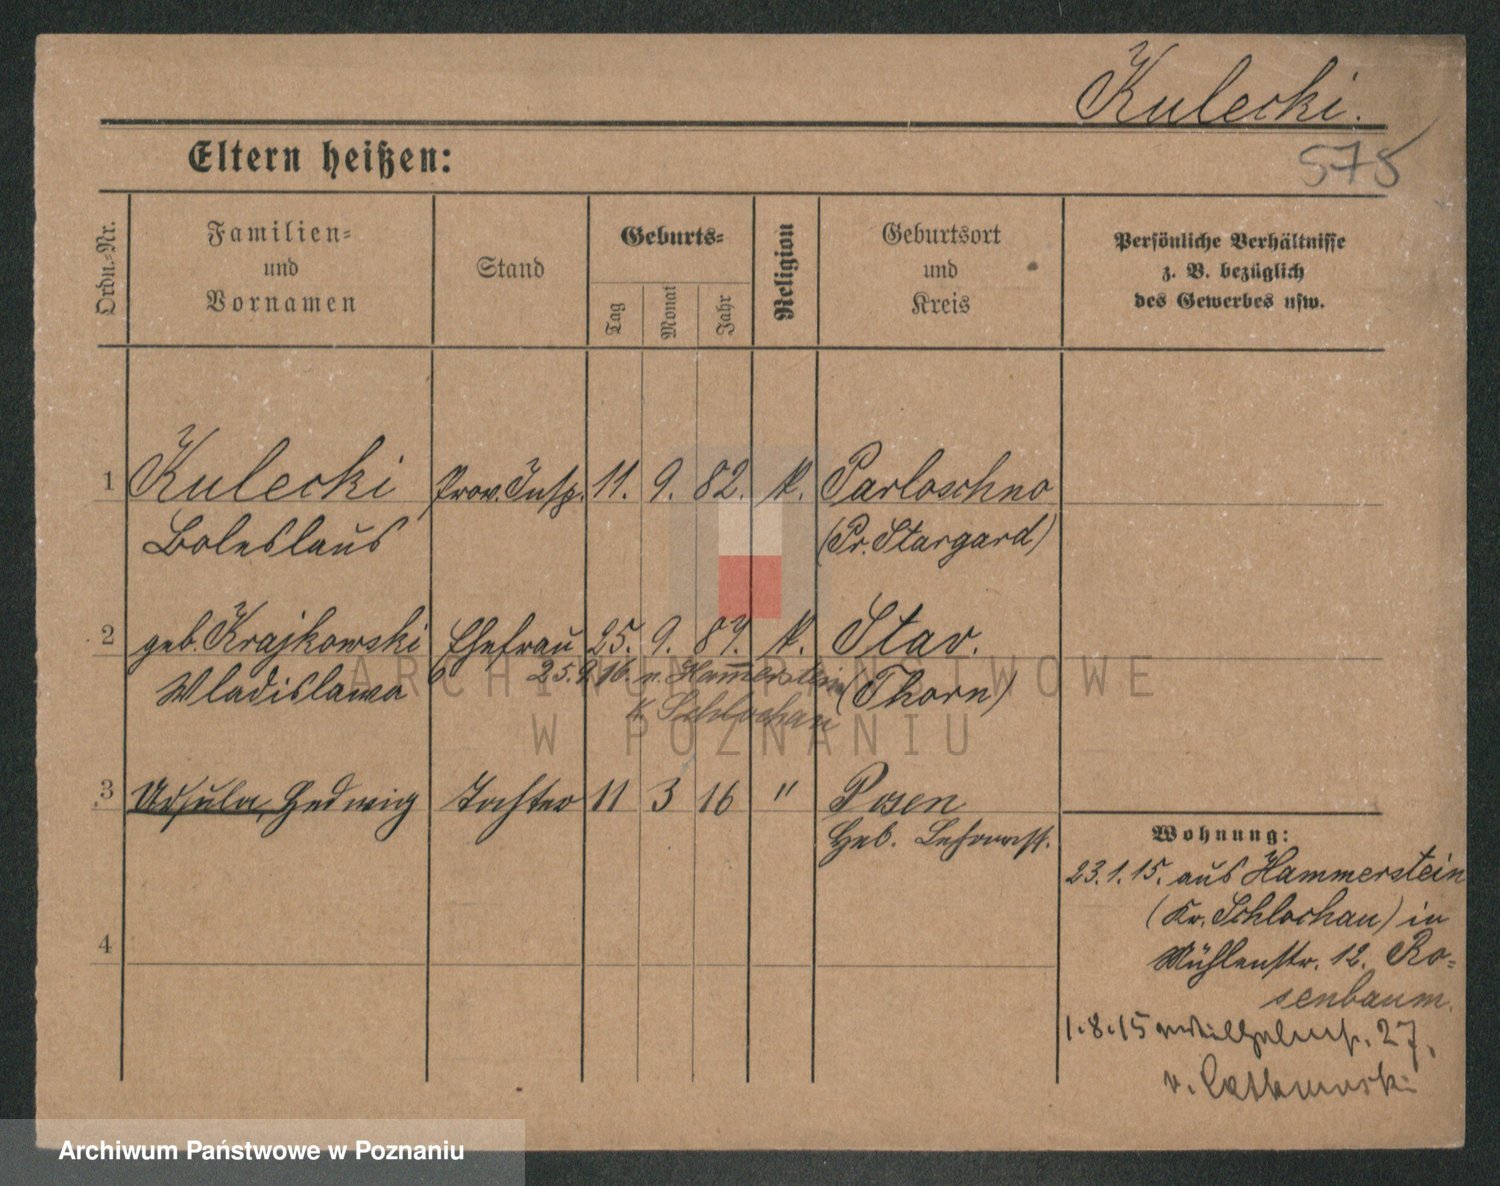 Kulecki.
575
Eltern heißen:
Ordn.-Nr.
Familien-
und
Vornamen
Stand
Geburts-
Tag
Monat
Jahr
Religion
Geburtsort
und
Kreis
Persönliche Verhältnisse
z. B. bezüglich
des Gewerbes usw.
1 Kulecki Prov. Insp. 11. 9. 82. k. Parloschno
Boleslaus (Pr. Stargard)
2 geb. Krajkowski Ehefrau 25. 9. 87. k. Stav.
Wladislawa 25.9.16. n. Hammerstein (Thorn)
K. Schlochau
3 Ursula, Hedwig Tochter 11 3 16 " Posen
Heb.
4
Wohnung:
23.1.15. aus Hammerstein
(Kr. Schlochau) in
Mühlenstr. 12. Ro-
senbaum.
1.8.15 27.
v.
ARCHIWUM PAŃSTWOWE
W POZNANIU
Archiwum Państwowe w Poznaniu